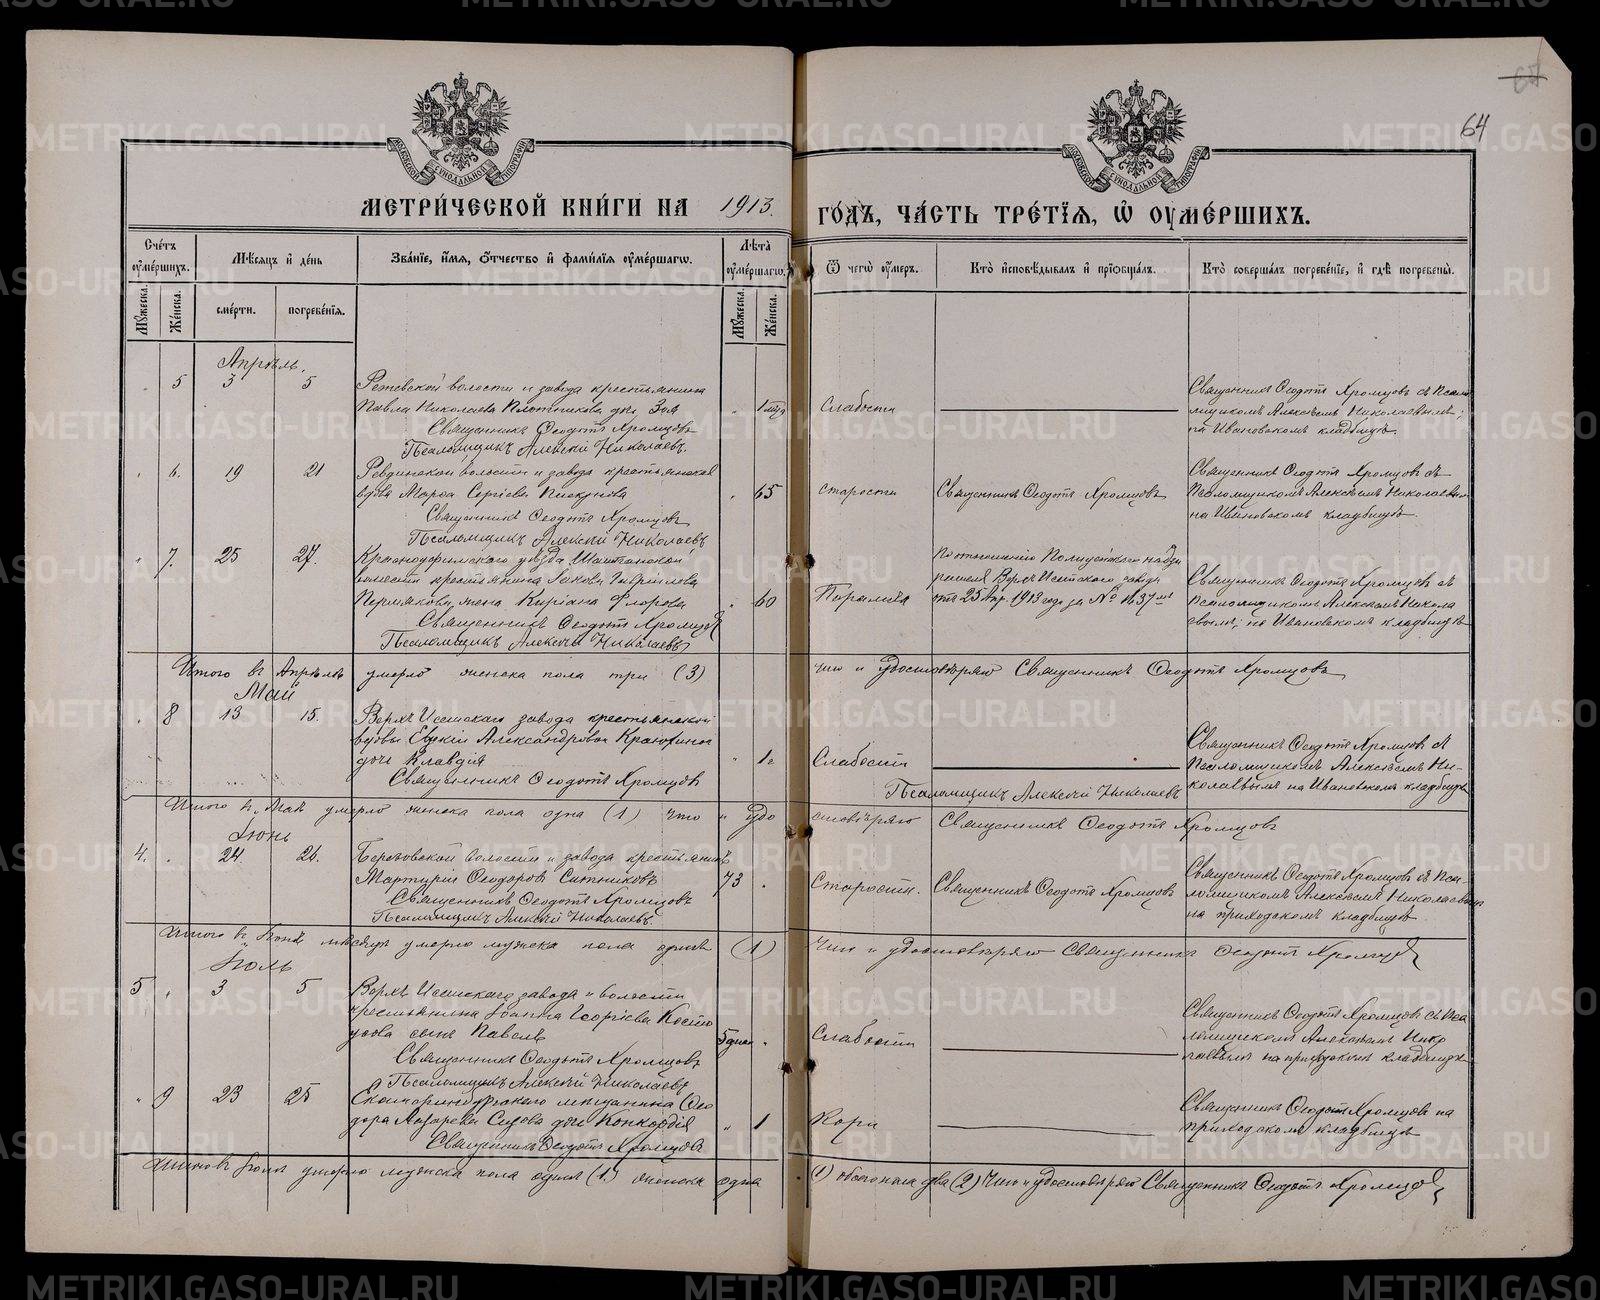 64
МОСКОВСКОЙ СѴНОДАЛЬНОЙ ТИПОГРАФІИ
МОСКОВСКОЙ СѴНОДАЛЬНОЙ ТИПОГРАФІИ
МЕТРИ́ЧЕСКОЙ КНИ́ГИ НА 1913. ГО́ДЪ, ЧА́СТЬ ТРЕ́ТІѦ, Ѡ҆ ОУМЕ́РШИХЪ.
Сче́тъ оумершихъ.
Мѣсѧцъ и де́нь
Зва́нїе, и́мѧ, ѻ҆́тчество и фами́лїѧ оуме́ршагѡ.
Лѣ̀та оумершагѡ.
Ѿ чегѡ̀ оу́меръ.
Кто̀ и҆сповѣ́дывалъ и прїѡбща́лъ.
Кто̀ соверша́лъ погребе́нїе, и гдѣ̀ погребены̀.
Мꙋ́жеска.
Же́нска.
сме́рти.
погребе́нїѧ.
Мꙋ́жеска.
Же́нска.
Апрѣль.
5 3 5 Режевской волости и завода крестьянина
Павла Николаева Плотникова дочь Зоя 1 мѣс Слабости
Священникъ Ѳеодотъ Хромцовъ
Псаломщикъ Алексій Николаевъ.
Священникъ Ѳеодотъ Хромцовъ съ Псало
мщикомъ Алексѣемъ Николаевымъ;
на Ивановскомъ кладбищѣ.
6. 19 21 Ревдинской волости и завода крестьянская
вдова Марѳа Сергіева Пискунова 65 старости Священникъ Ѳеодотъ Хромцовъ
Священникъ Ѳеодотъ Хромцовъ
Псаломщикъ Алексій Николаевъ
Священникъ Ѳеодотъ Хромцовъ съ
Псаломщикомъ Алексѣемъ Николаевым
на Ивановскомъ кладбищѣ.
7. 25 27. Красноуфимскаго уѣзда Шайтанской
волости крестьянина Іакова Гавріилова
Пермякова, жена Киріана Флорова 60 Паралича
Священникъ Ѳеодотъ Хромцовъ
Псаломщикъ Алексѣй Николаевъ
По отношенію Полицейскаго надзи
рателя Верхъ Исетскаго завода
отъ 25 Апр. 1913 года за №
Священникъ Ѳеодотъ Хромцовъ съ
Псаломщикомъ Алексѣемъ Никола
евымъ; на Ивановскомъ кладбищѣ
Итого въ Апрѣлѣ умерло женска пола три (3) что и удостовѣряю Священникъ Ѳеодотъ Хромцовъ
Май
8 13 15. Верхъ Исетскаго завода крестьянской
вдовы Александровой
дочь Клавдія Слабости
Священникъ Ѳеодотъ Хромцовъ
Псаломщикъ Алексій Николаевъ
Священникъ Ѳеодотъ Хромцовъ съ
Псаломщикомъ Алексѣемъ Ни-
колаевымъ на Ивановскомъ кладбищѣ
Итого въ Маѣ умерло женска пола одна (1) что и удо стовѣряю Священникъ Ѳеодотъ Хромцовъ
Іюнь
4. 24. 26. Березовской волости и завода крестьянинъ
Мартирій Ѳеодоровъ Ситниковъ 73 Старости. Священникъ Ѳеодотъ Хромцовъ
Священникъ Ѳеодотъ Хромцовъ
Псаломщикъ Алексій Николаевъ.
Священникъ Ѳеодотъ Хромцовъ съ Пса-
ломщикомъ Алексѣемъ Николаевымъ
на приходскомъ кладбищѣ
Итого въ Іюнѣ мѣсяцѣ умерло мужска пола одинъ (1) Что и удостовѣряю Священникъ Ѳеодотъ Хромцовъ
Іюль
5 3 5 Верхъ Исетскаго завода и волости
крестьянина Іоанна Георгіева Косто
усова сынъ Павелъ 5 дней Слабости
Священникъ Ѳеодотъ Хромцовъ
Псаломщикъ Алексій Николаевъ
Священникъ Ѳеодотъ Хромцовъ съ Пса
ломщикомъ Алексѣемъ Нико
лаевымъ на приходскомъ кладбищѣ
9 23 25 Екатеринбургскаго мѣщанина Ѳео
дора Лазарева дочь Конкордія 1 Кори
Священникъ Ѳеодотъ Хромцовъ
Священникъ Ѳеодотъ Хромцовъ на
приходскомъ кладбищѣ
Итого въ Іюлѣ умерло мужска пола одинъ (1) женска одна (1) обоего пола два (2) Что и удостовѣряю Священникъ Ѳеодотъ Хромцовъ
METRIKI.GASO-URAL.RU